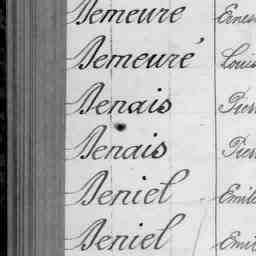 Demeure Ernes
Demeuré Louis
Denais Pier
Denais Pier
Deniel Emile
Deniel Emil